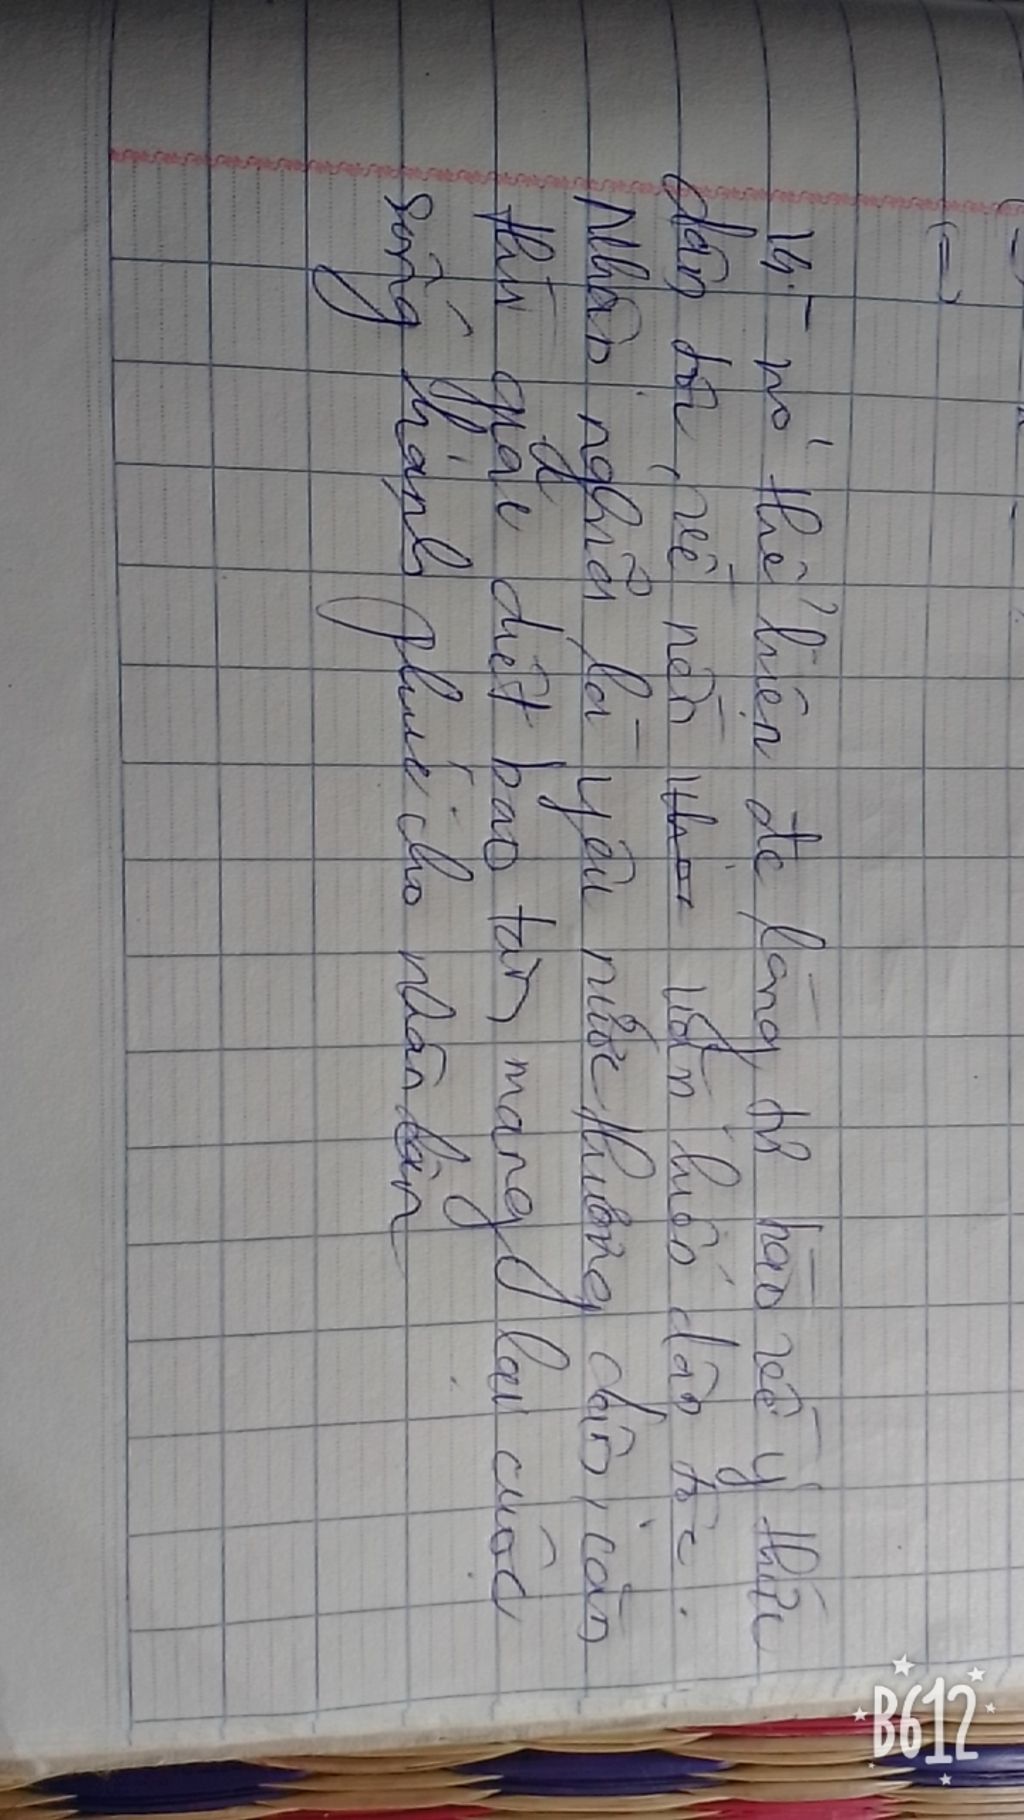 Vì nó thể hiện đc lòng tự hào về ý thức
dân tộc, về nền văn hiến dân tộc.
Nhân nghĩa là yêu nước thương dân, còn
thì giặc diệt bạo tàn mang lại cuộc
sống hạnh phúc cho nhân dân
B612